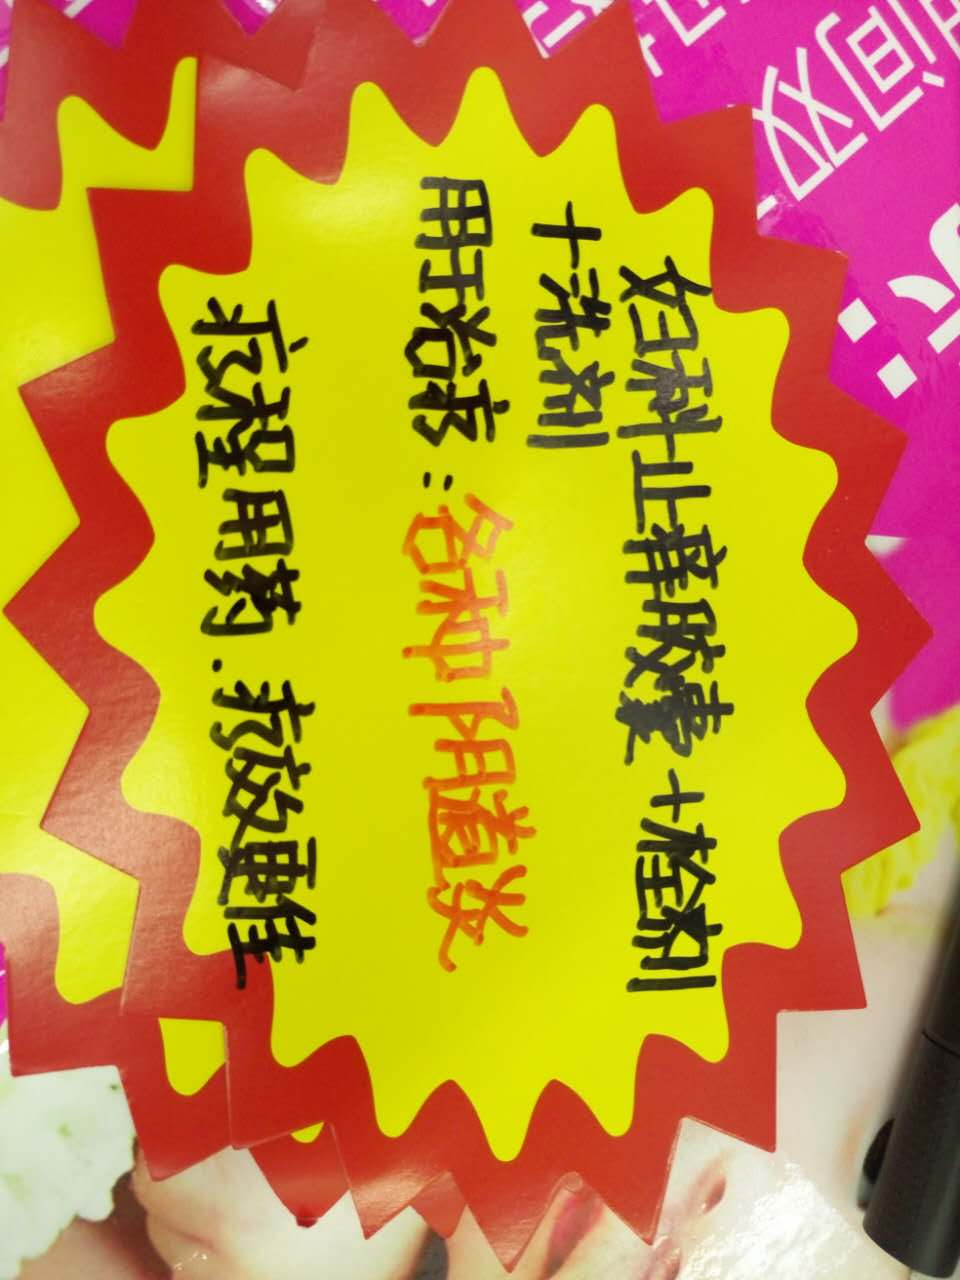 妇科止痒胶囊+栓剂
+洗剂
用于治疗:各种阴道炎
疗程用药.疗效更佳